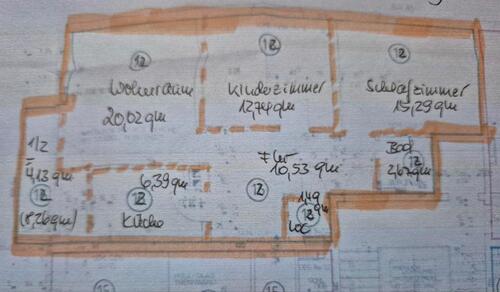 12
12
12
Wohnraum
20,02qm
Kinderzimmer
12,74qm
Schlafzimmer
15,29qm
1/2
=
4,13qm
12
(8,26qm)
6,39qm
12
Küche
Flur
10,53qm
12
Bad
12
2,67qm
1,49
qm
12
WC
15